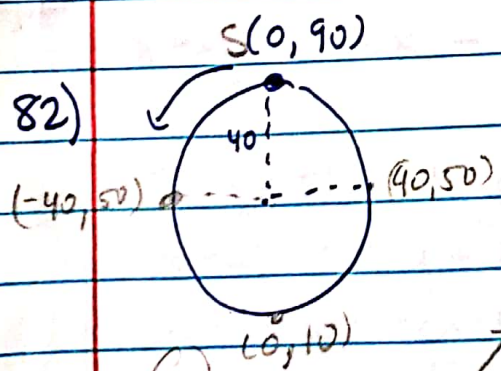 S(0, 90)
82)
40
(-40, 50)
(40, 50)
(0, 10)